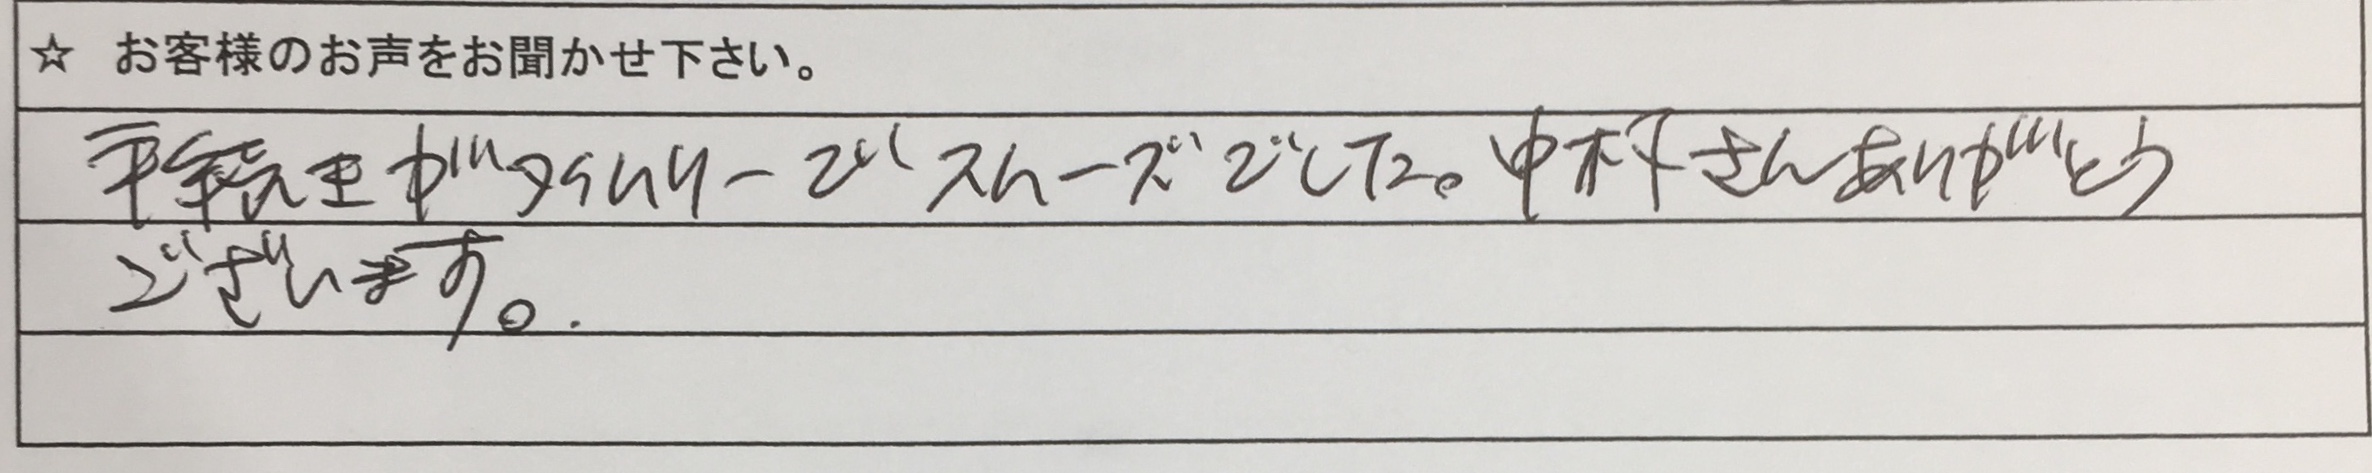 ☆ お客様のお声をお聞かせ下さい。
手続きがタイムリーでスムーズでした。中村さんありがとう
ございます。